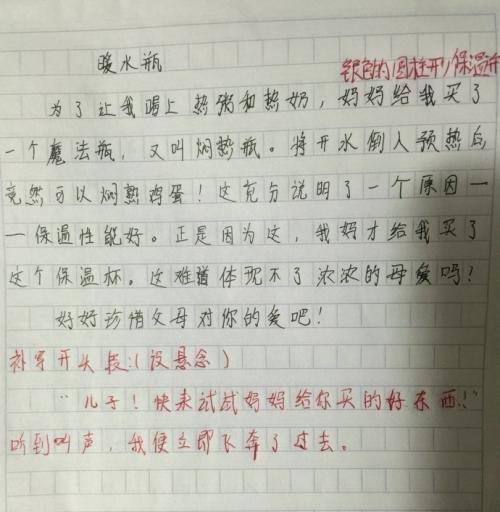 暖水瓶
银色的圆柱形保温杯
为了让我喝上热粥和热奶，妈妈给我买了
一个魔法瓶，又叫焖热瓶。将开水倒入预热后
竟然可以焖熟鸡蛋！这充分说明了一个原因—
—保温性能好。正是因为这，我妈才给我买了
这个保温杯。这难道体现不了浓浓的母爱吗？
好好珍惜父母对你的爱吧！
补写开头段：（设悬念）
“儿子！快来试试妈妈给你买的好东西！”
听到叫声，我便立即飞奔了过去。